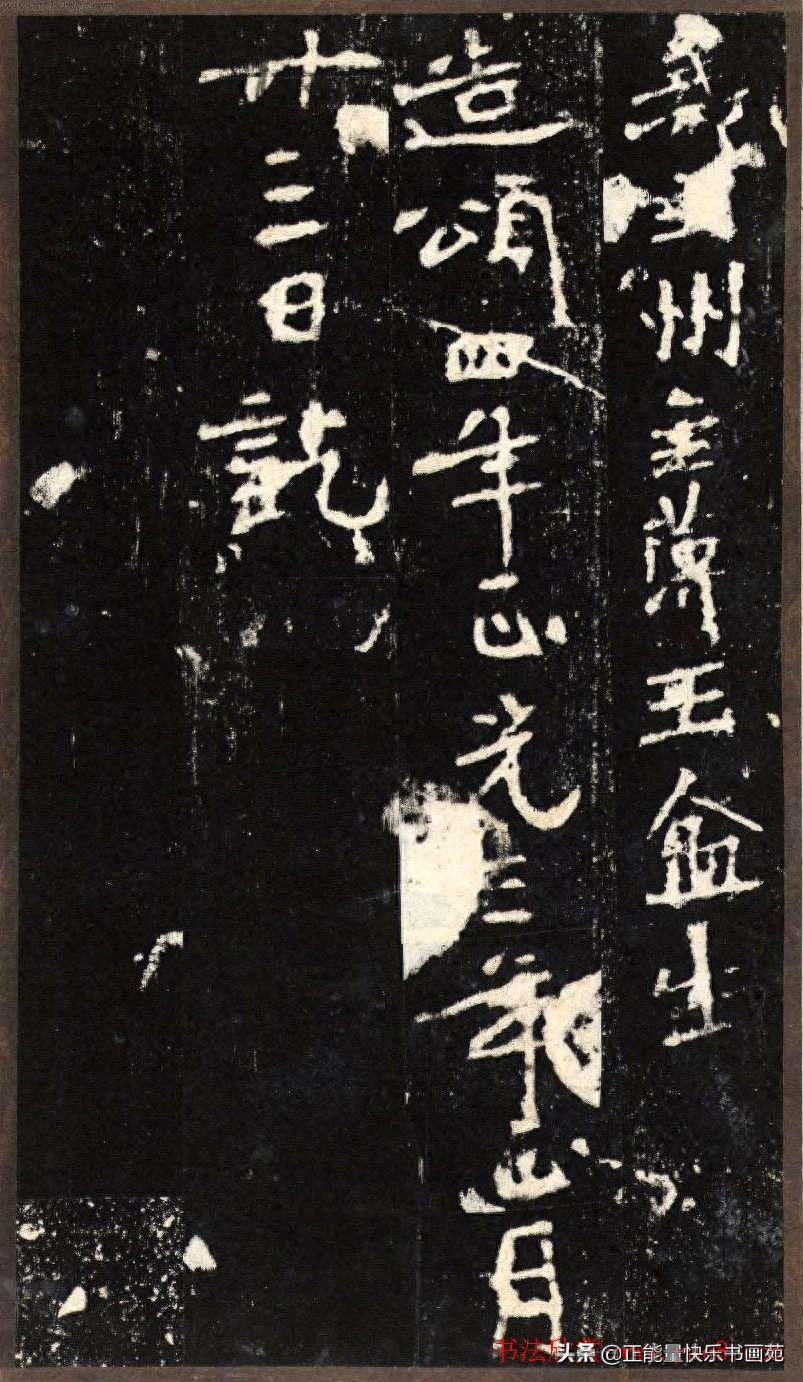 義州主薄王盆生
造頌四年正光三年正月
廿三日訖
书法欣
头条 @正能量快乐书画苑